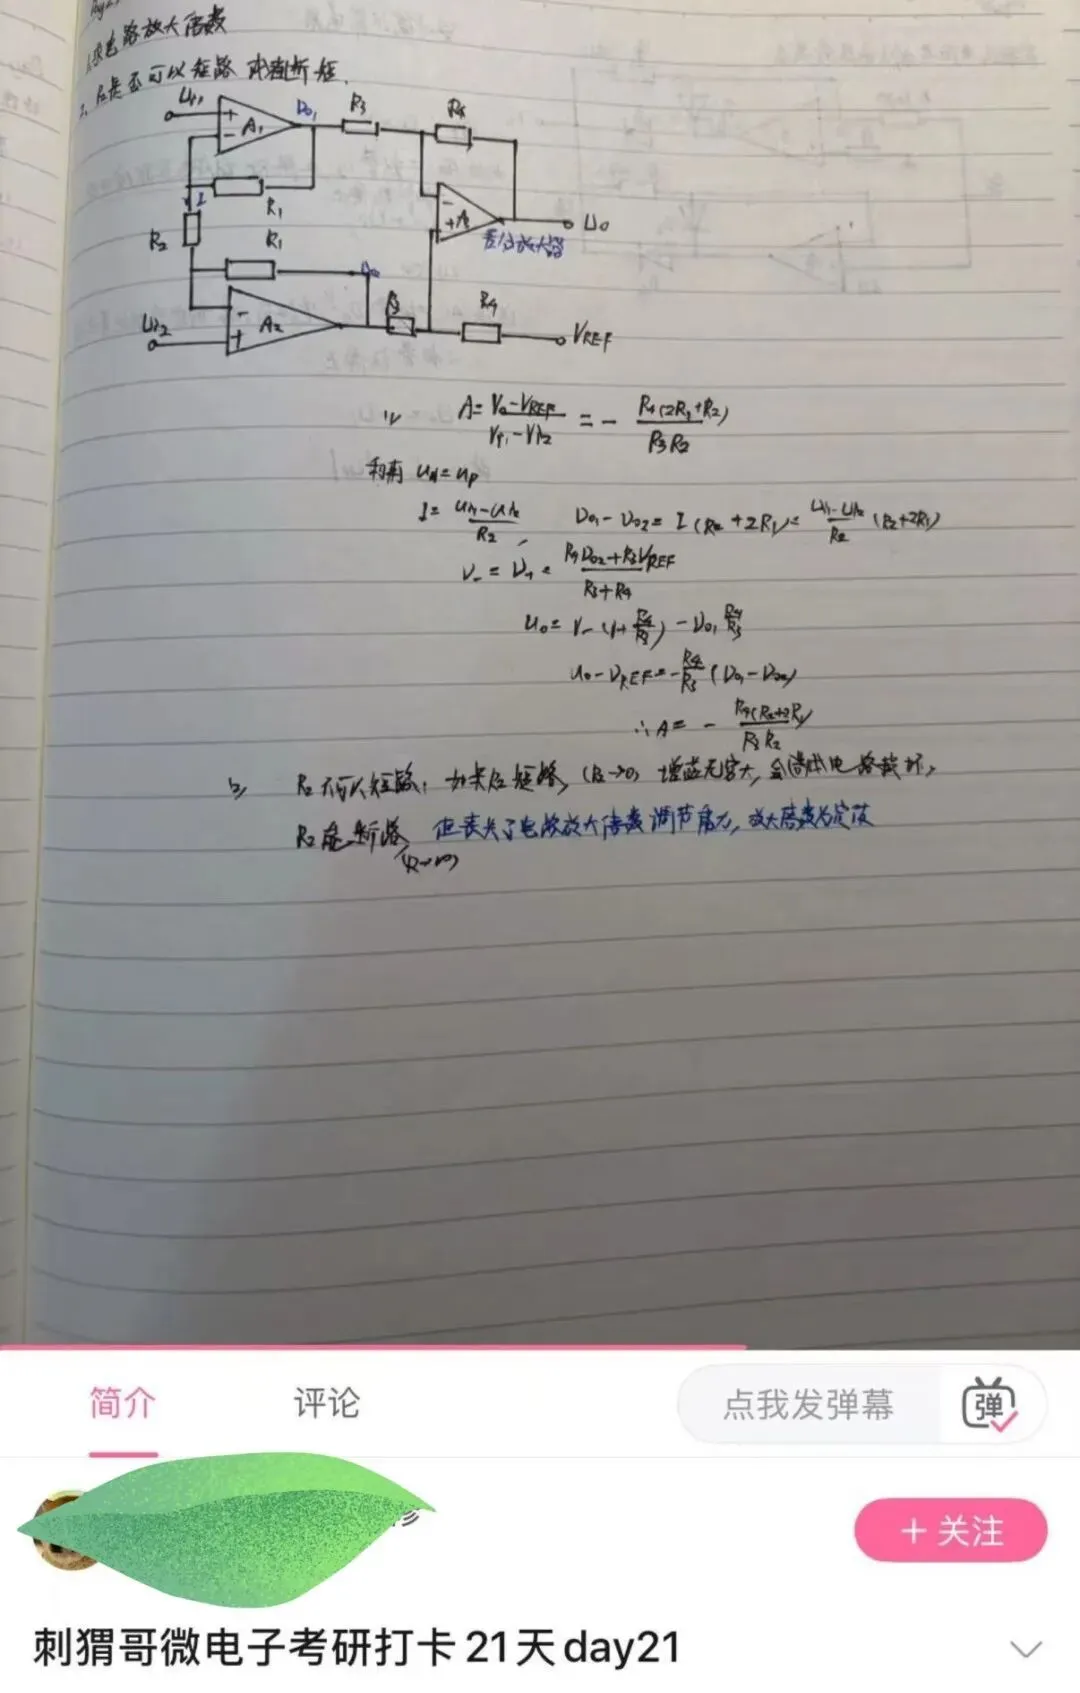 1.求电路放大倍数
2、R₂是否可以短路 或断路.
Ui₁
A₁
Uo₁
R₃
R₄
R₁
I
R₂
R₁
A₃
Uo
差分放大器
Uo₂
R₃
R₄
Ui₂
A₂
VREF
1) A= (Vo-VREF)/(Vi₁-Vi₂) = - R₄(2R₁+R₂)/(R₃R₂)
利用 uN=uP
I= (ui₁-ui₂)/R₂, Uo₁-Uo₂= I(R₂+2R₁)= (Ui₁-Ui₂)/R₂ (R₂+2R₁)
V₋ = V₊ = (R₄Uo₂+R₃VREF)/(R₃+R₄)
uo= V₋(1+R₄/R₃) - Uo₁ R₄/R₃
uo-VREF= -R₄/R₃ (Uo₁-Uo₂)
∴A= - R₄(R₂+2R₁)/(R₃R₂)
2) R₂不可以短路, 如果R₂短路,(R₂→0) 增益无穷大,会造成电路损坏,
R₂能断路 但丧失了电路放大倍数调节能力,放大倍数为定值
(R→∞)
简介
评论
点我发弹幕
弹
+ 关注
刺猬哥微电子考研打卡21天day21